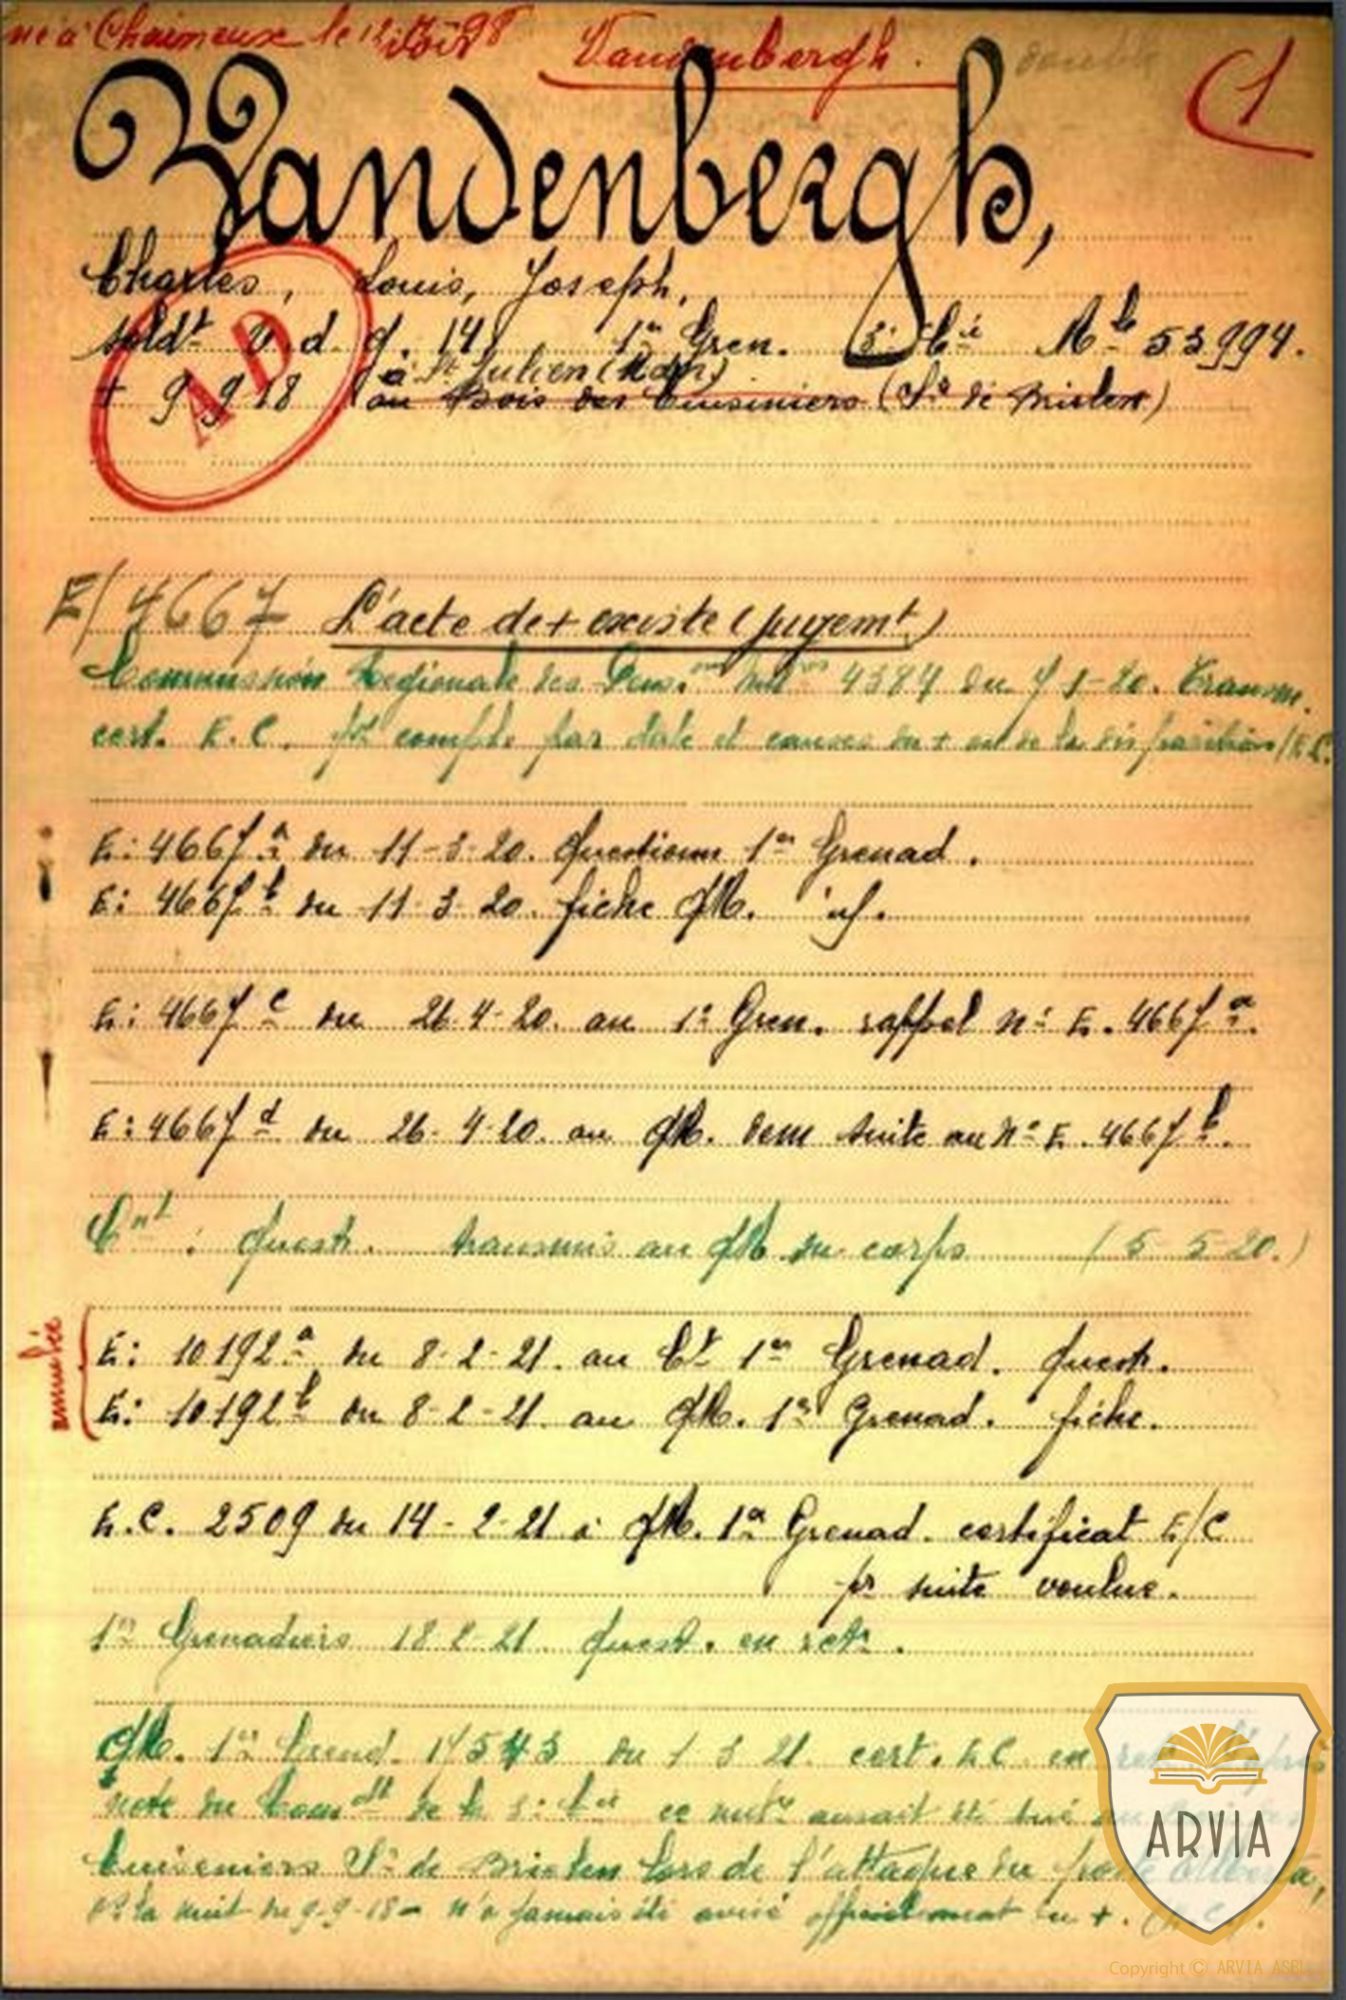 né à Chaineux le 12 98
Vandenbergh.
double
C1
Vandenbergh,
Charles, Louis, Joseph,
soldt v. d. g. 14 1er Gren. 8e Cie Mle 53994.
à St Julien (Mon)
+ 9 9 18 au Bois des Cuisiniers (Sr de Merken)
A D
E/4667 L'acte de + existe (jugemt)
Commission Régionale des Pens.ons milres 4384 du 7 1-20. Transm.
cert. E.C. pr compléter par date et causes du + ou de la disparition (E.C.
E: 4667 a du 11-3-20. Questionn 1er Grenad.
E: 4667 b du 11-3-20. fiche QM. inf.
E: 4667 c du 26.4-20. au 1er Gren. rappel no E. 4667 a.
E: 4667 d du 26-4-20. au QM. dem suite au No E. 4667 b.
Cmt: Questr. transmis au QM du corps (5-5-20.)
annulée
E: 10192 a du 8-2-21. au Ct 1er Grenad. Questr.
E: 10192 b du 8-2-21. au QM. 1er Grenad. fiche.
E.C. 2509 du 14-2-21 à QM. 1er Grenad. certificat E/C
pr suite voulue.
1er Grenadiers 18-2-21. Quest. en retr.
QM. 1er Grend. du 1 3 21. cert. E.C. en
note du Comdt de la 8e Cie ce milre aurait été tué au
Cuisiniers Sr de lors de l'attaque du front
de la nuit du 9-9-18 - n'a jamais été avisé officiellement du +.
ARVIA
Copyright © ARVIA ASBL